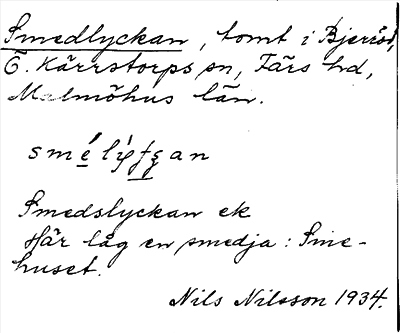 Smedlyckan, tomt i Bjeröd,
Ö. Kärrstorps sn, Färs hd,
Malmöhus län.
Smedslyckan ek
Här låg en smedja: Sme-
huset.
Nils Nilsson 1934.